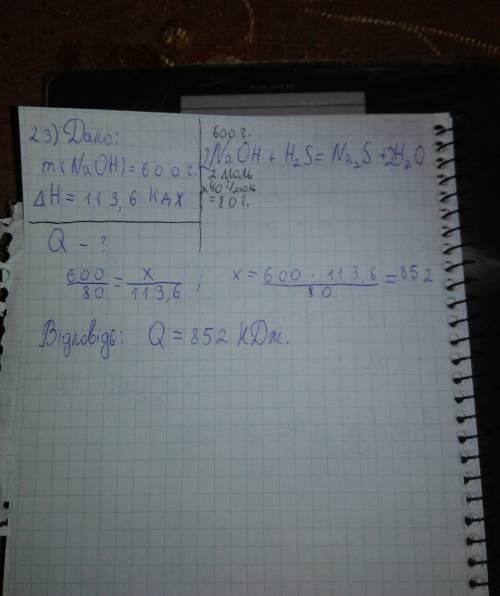 23) Дано:
m(NaOH) = 600 г.
ΔH = 113,6 кДж
Q - ?
600 г.
2NaOH + H₂S = Na₂S + 2H₂O
2 моль
×40 г/моль
= 80 г.
600/80 = x/113,6 ; x = 600 · 113,6/80 = 852
Відповідь: Q = 852 кДж.